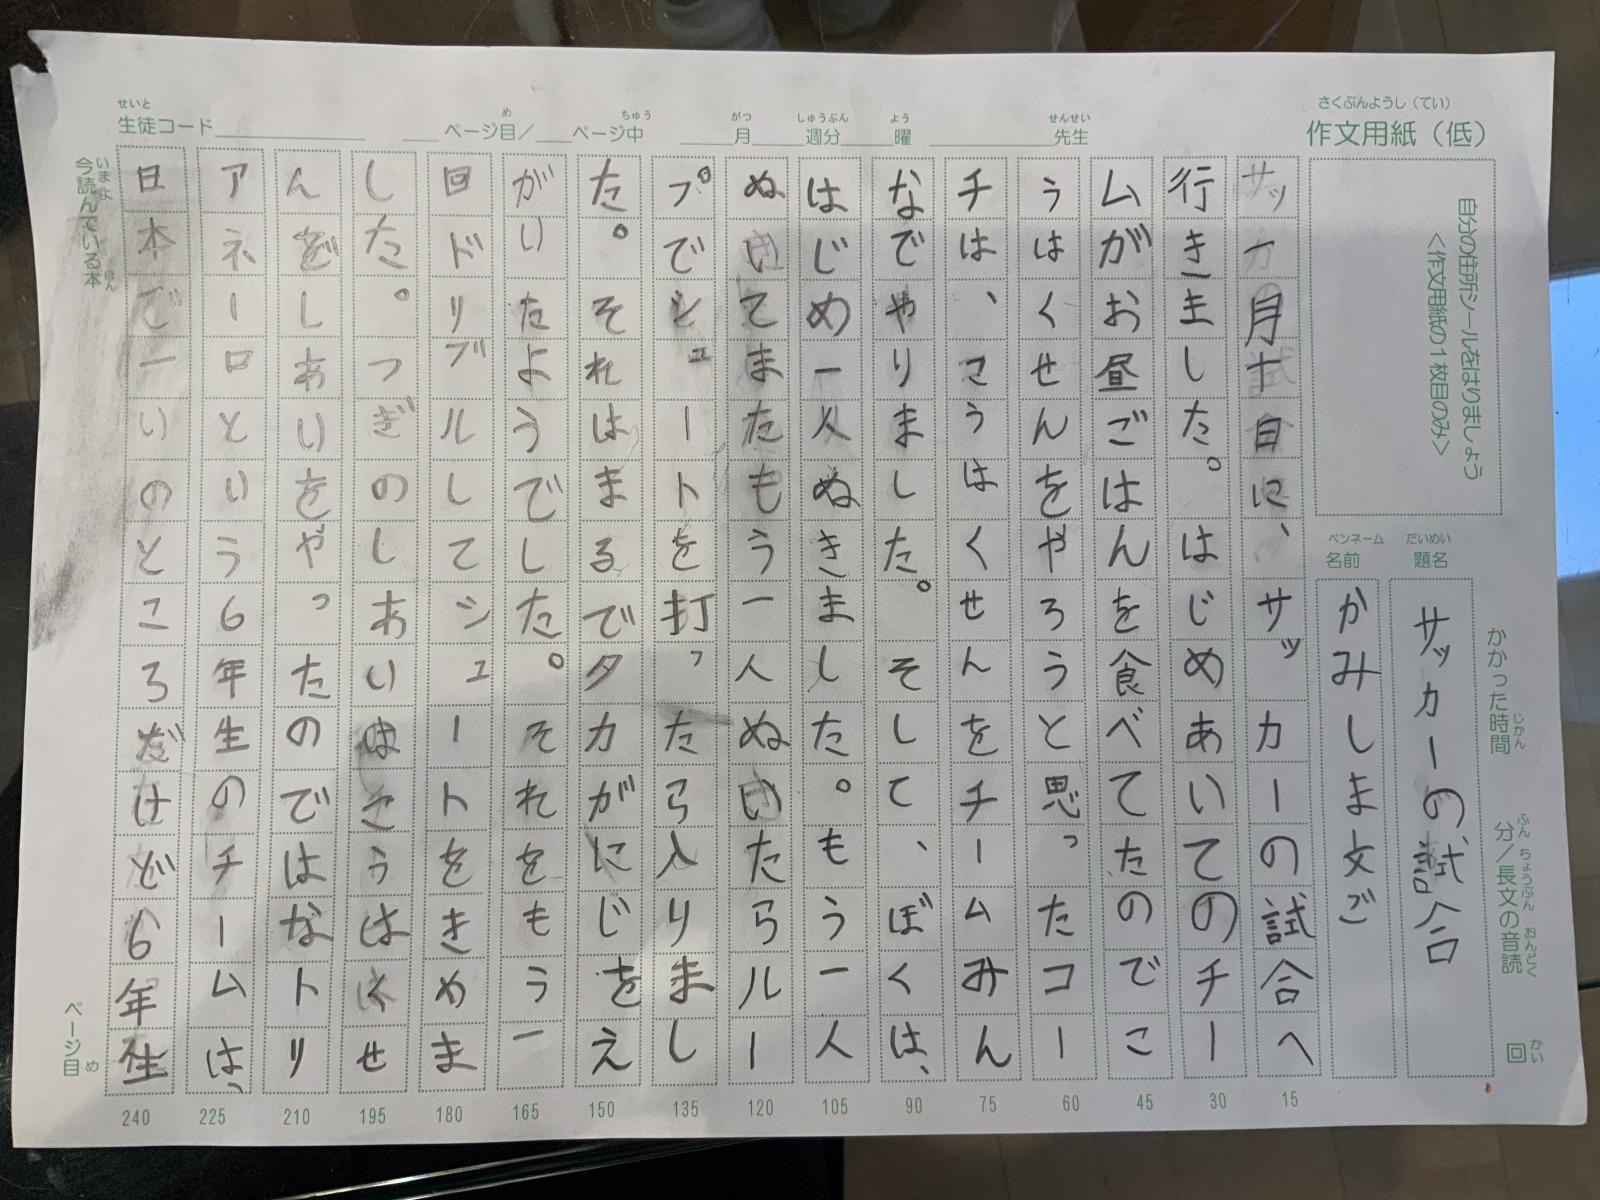 さくぶんようし（てい）
作文用紙（低）
せんせい
先生
よう
曜
しゅうぶん
週分
がつ
月
ちゅう
ページ中
め
ページ目/
せいと
生徒コード
自分の住所シールをはりましょう
<作文用紙の1枚目のみ>
かかった時間
じかん
分/長文の音読
ふん ちょうぶん おんどく
回
かい
だいめい
題名
サッカーの試合
ペンネーム
名前
かみしま文ご
月十日に、サッカーの試合へ
行きました。はじめあいてのチー
ムがお昼ごはんを食べてたのでこ
うはくせんをやろうと思ったコー
チは、こうはくせんをチームみん
なでやりました。そして、ぼくは、
はじめ一人ぬきました。もう一人
ぬいてまたもう一人ぬいたらルー
プでシュートを打ったら入りまし
た。それはまるでタカがにじをえ
がいたようでした。それをもう一
回ドリブルしてシュートをきめま
した。つぎのしあいはこうはくせ
んをしあいをやったのではなトリ
アネーロという6年生のチームは、
日本で一いのところだけど6年生
15
30
45
60
75
90
105
120
135
150
165
180
195
210
225
240
いまよ ほん
今読んでいる本
ページ目
め